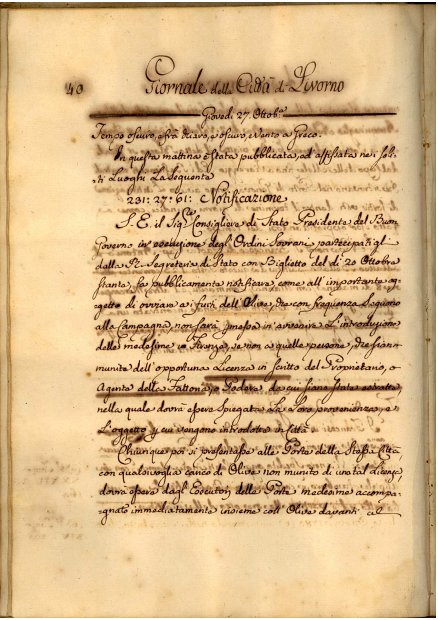 40
Giornale della Città di Livorno
Giovedì 27. Ottob.e
Tempo oscuro, e frà chiaro, e oscuro, e vento a Greco.
In questa mattina è stata pubblicata, ed affissata nei soli-
ti Luoghi La Seguente
231: 27: 61: Notificazione
S. E. il Sig.re Consigliere di Stato Presidente del Buon
Governo in esecuzione degl'Ordini Sovrani partecipatigli
dalla R. Segreteria di Stato con Biglietto del dì 20 Ottobre
stante, fa pubblicamente notificare, come all'importante og-
getto di ovviare ai furti dell'Olive, che con frequenza Seguono
alla Campagna, non sarà permessa in avvenire L'introduzione
delle medesime in Firenze, se non a quelle persone, che sian
munite dell'opportuna Licenza in scritto del Proprietario, o
Agente della Fattoria, o Podere da cui siano state estratte,
nella quale dovrà essere Spiegata La Loro provenienza, e
L'oggetto p cui vengono introdotte in Città
Chiunque poi si presentasse alle Porte della Stessa Città
con qualsivoglia carico di Olive non munito di una tal licenza,
dovrà essere dagl'Esecutori delle Porte medesime accompa-
gnato immediatamente insieme coll'Olive davanti al